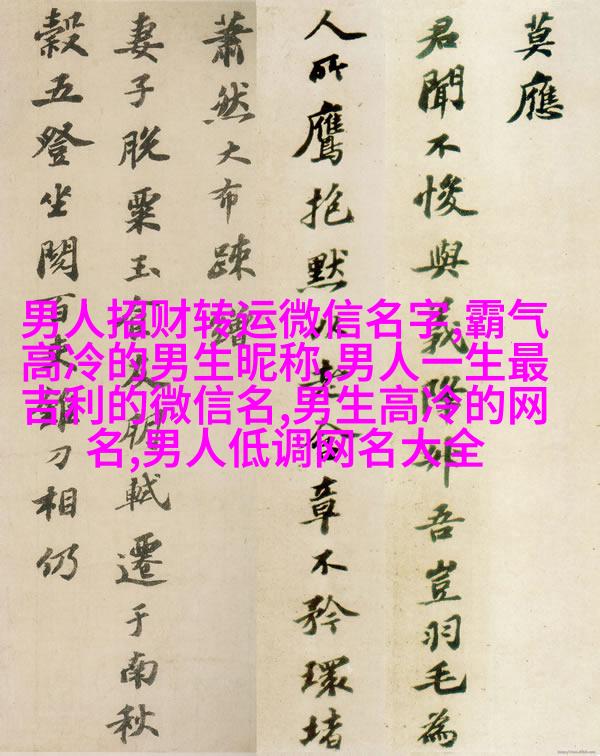 男人招财转运微信名字,霸气
高冷的男生昵称,男人一生最
吉利的微信名,男生高冷的网
名,男人低调网名大全
莫應
君聞不悛與義降升吾豈羽毛為
人所鷹抱默以老含章不矜環堵
蕭然大布疎繒
妻子脫粟玉食友朋軾遷于南秋
穀五登坐閱百吏錐刀相仍